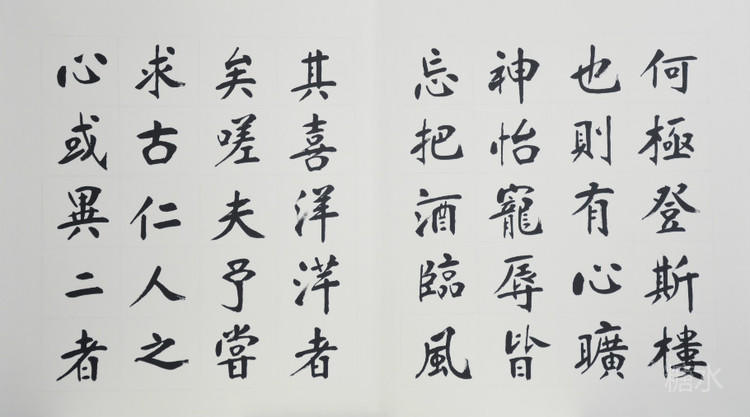 何極登斯樓
也則有心曠
神怡寵辱皆
忘把酒臨風
其喜洋洋者
矣嗟夫予嘗
求古仁人之
心或異二者
糖水